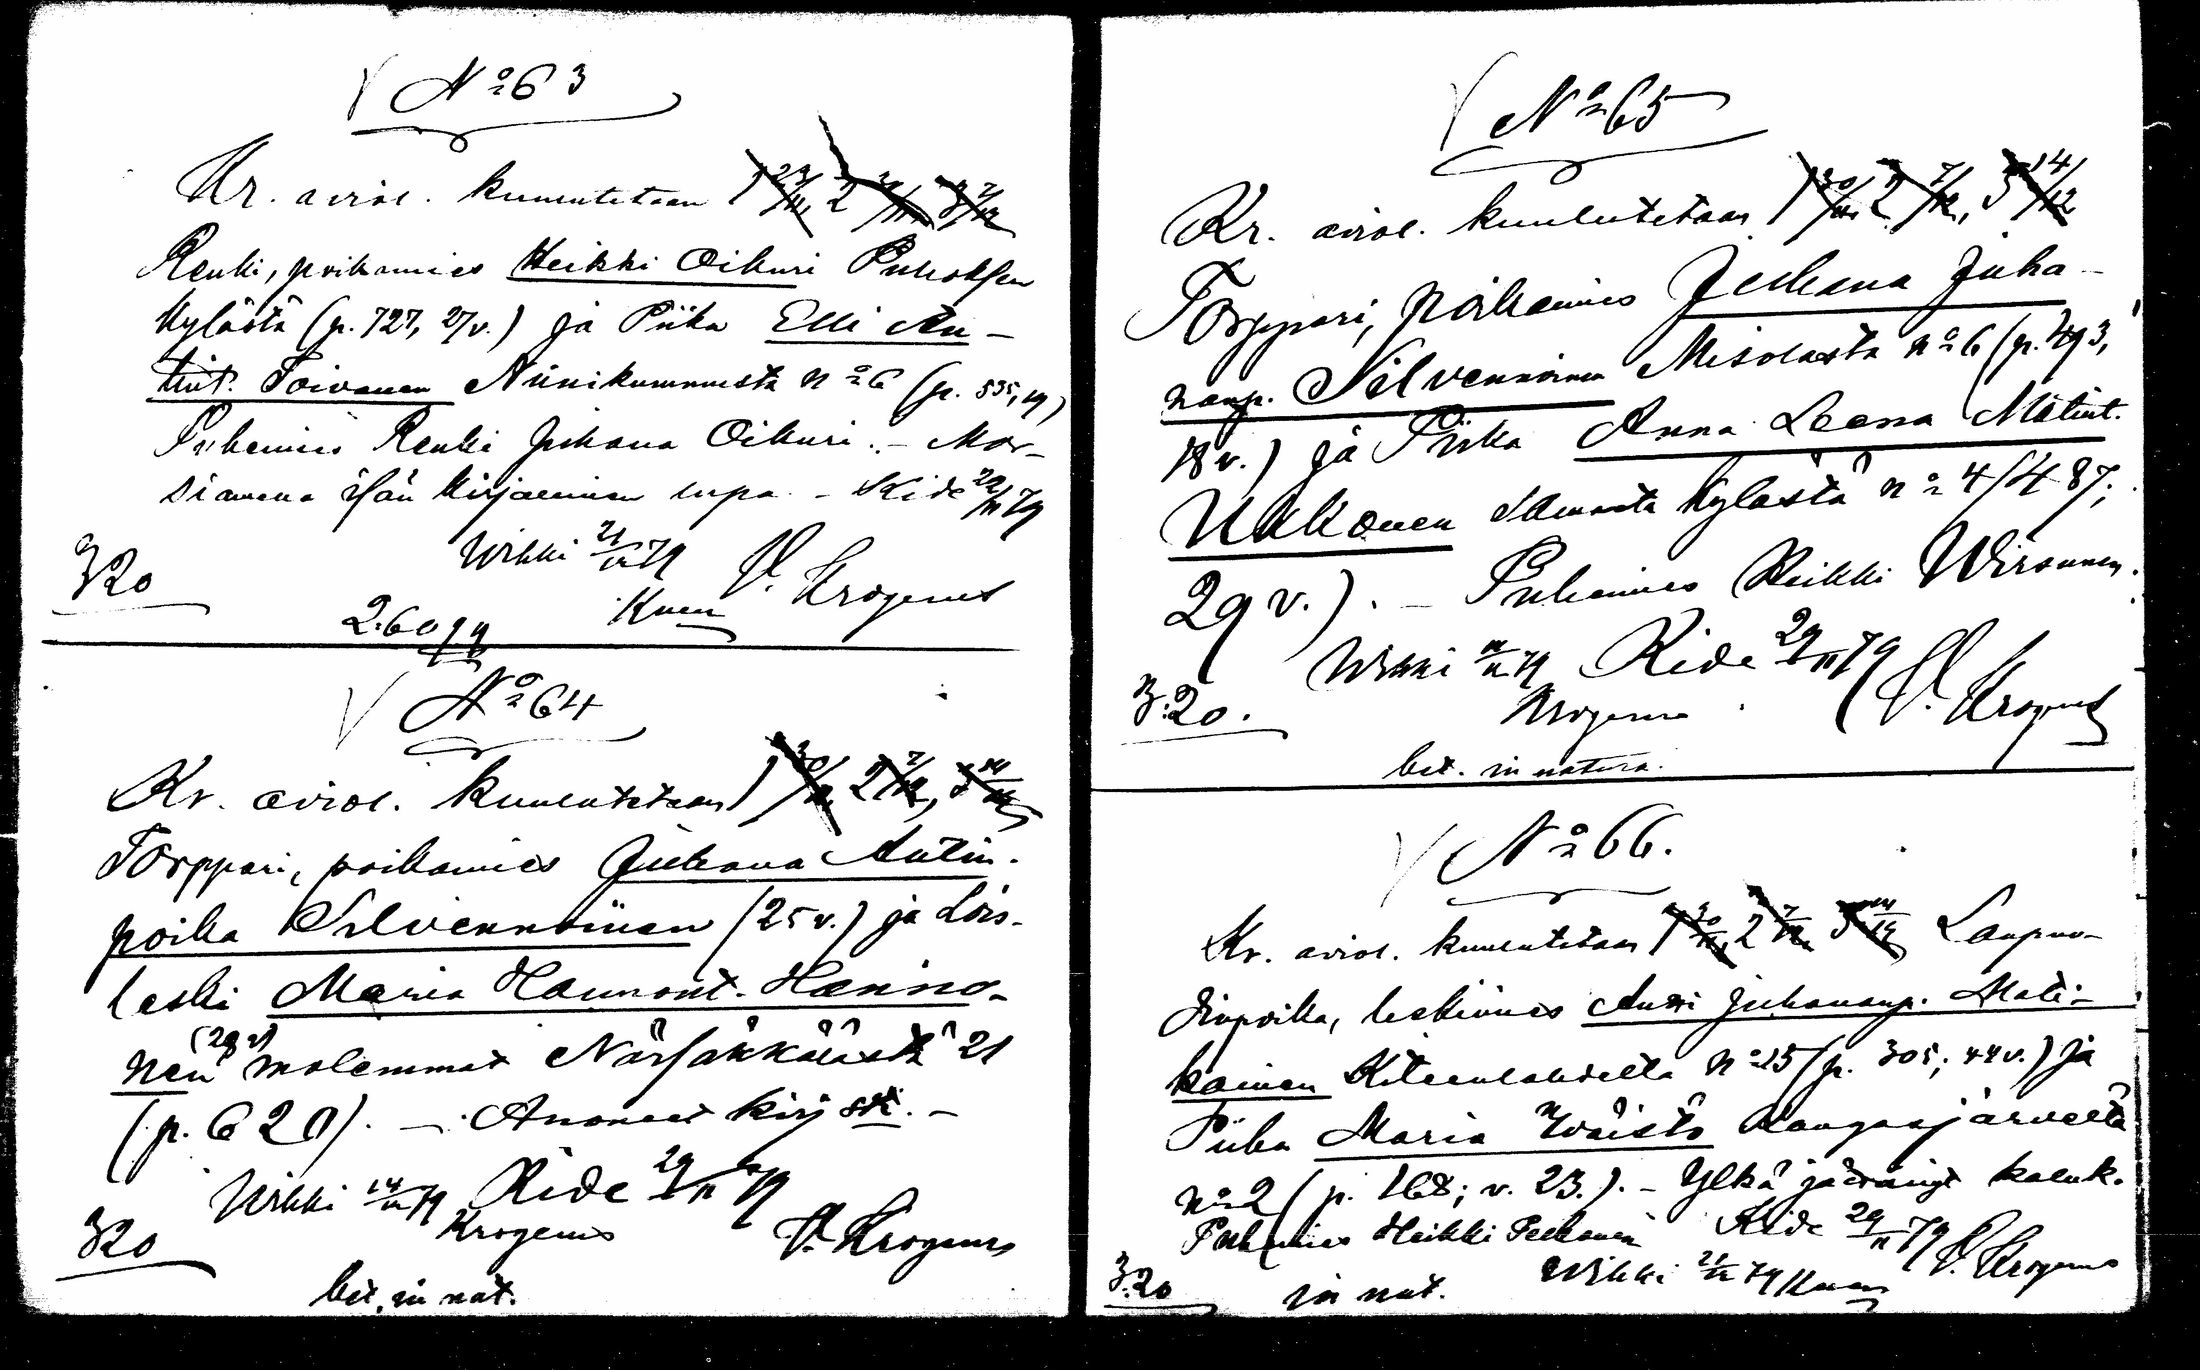 № 63
Kr. aviol. kuulutetaan 1 23/11, 2 30/11, 3 7/12
Renki, poikamies Heikki Oikuri Puhoksen
kylästä (p. 727, 27 v.) ja Piika Elli An-
tint. Toivanen Niinikummusta № 6 (p. 535, 19)
Puhemies Renki Juhana Oikuri. - Mor-
siamena isän kirjallinen lupa. - Kide 22/11 79
Wihki 21/12 79 V. Krogerus
3 20
2.60
№ 64
Kr. aviol. kuulutetaan 1 30/11, 2 7/12, 3 14/12
Torppari, poikamies Juhana Antin-
poika Silvennoinen (25 v.) ja Lois-
leski Maria Hannont. Hänni-
nen (29 v) molemmat Närsäkkälästä 21
(p. 620). - Anoneet kirj
Wihki 14/12 79 Kide 29/11 79
Krogerus V. Krogerus
3 20
bet. in nat.
№ 65
Kr. aviol. kuulutetaan 1 30/11, 2 7/12, 3 14/12
Torppari, poikamies Juhana Juha-
nanp. Silvennoinen Misolasta № 6 (p. 493,
18 v.) ja Piika Anna Leena Matint.
Ukkonen samasta kylästä № 4 (487;
29 v.). - Puhemies Heikki Wirounen.
Wihki 79 Kide 29/11 79
Krogerus V. Krogerus
3:20.
bet. in natura.
№ 66.
Kr. aviol. kuulutetaan 1 30/11, 2 7/12, 3 14/12 Laupun-
dinpoika, leskimies Anssi Juhananp. Mati-
kainen Kiteenlahdelta № 15 (p. 305; 44 v.) ja
Piika Maria Wäistö Kangasjärveltä
№ 2 (p. 168; v. 23.). -
Puhemies Heikki Pekkanen Kide 29/11 79 V. Krogerus
3:20 in nat. Wihki 21/12 79